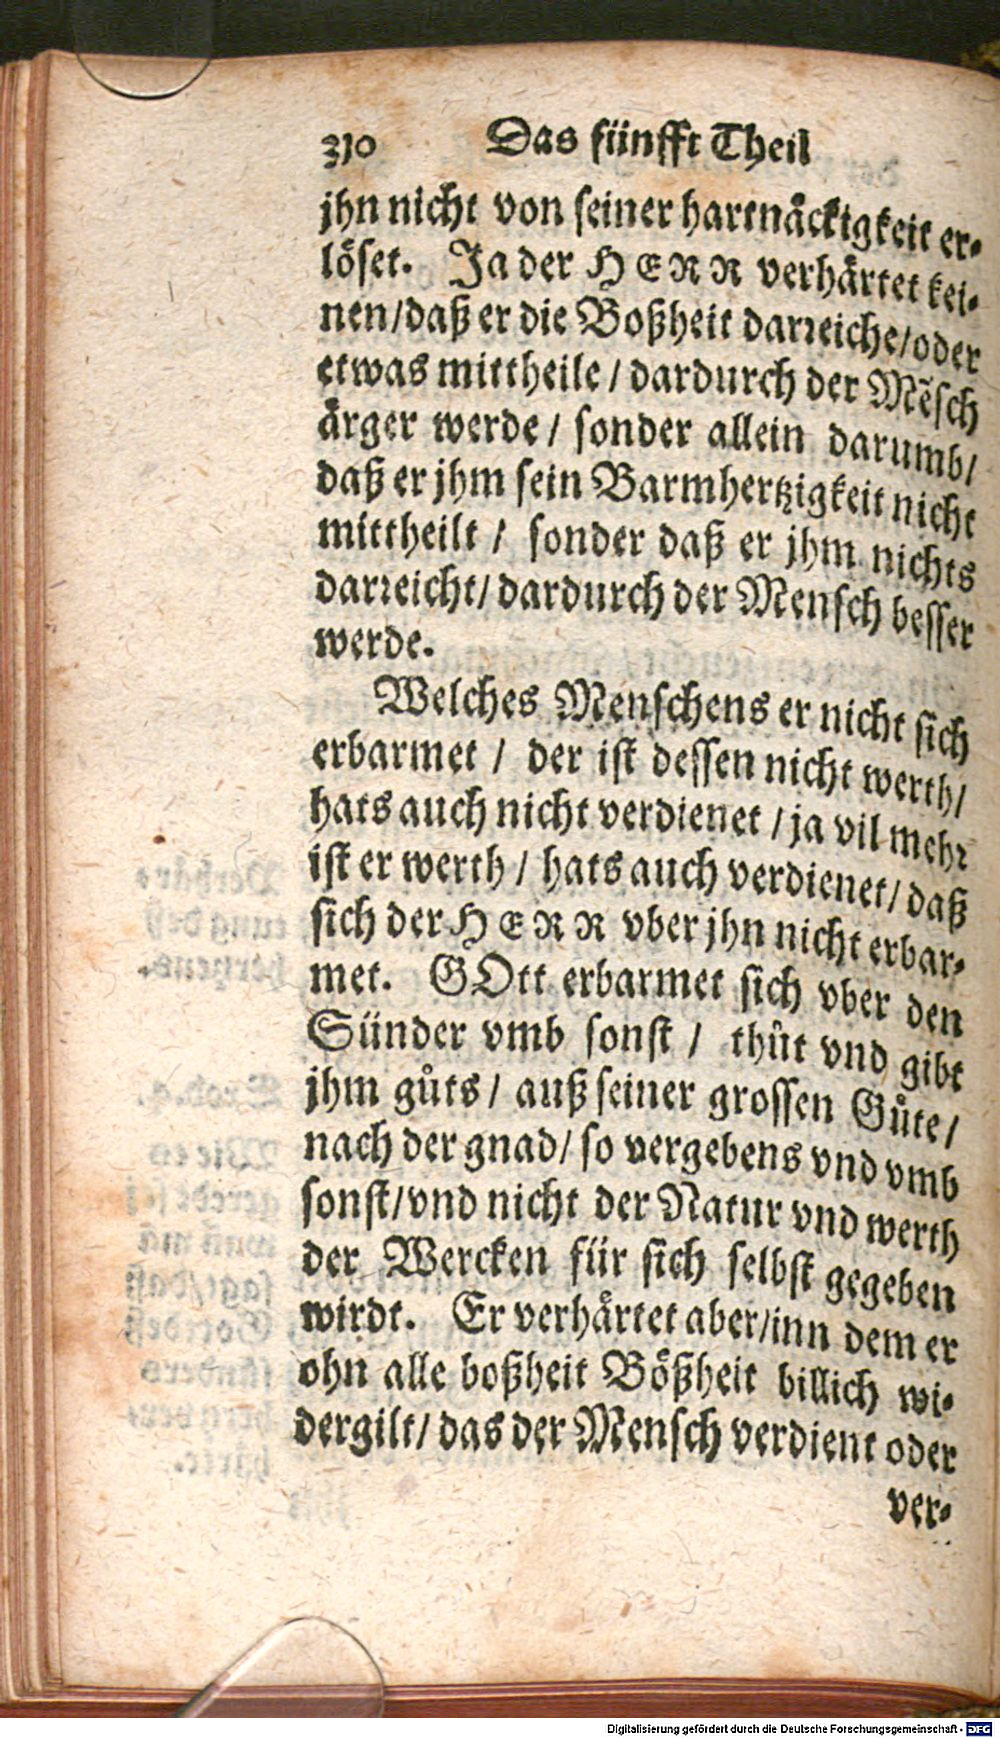 310 Das fünfft Theil
jhn nicht von seiner hartnåckigkeit er-
löset. Ja der HERR verhårtet kei-
nen/daß er die Boßheit darreiche/oder
etwas mittheile / dardurch der Mẽsch
årger werde / sonder allein darumb/
daß er jhm sein Barmhertzigkeit nicht
mittheilt / sonder daß er jhm nichts
darreicht/ dardurch der Mensch besser
werde.
Welches Menschens er nicht sich
erbarmet / der ist dessen nicht werth/
hats auch nicht verdienet / ja vil mehr
ist er werth / hats auch verdienet/ daß
sich der HERR vber jhn nicht erbar-
met. GOtt erbarmet sich vber den
Sünder vmb sonst / thůt vnd gibt
jhm gůts / auß seiner grossen Gůte/
nach der gnad/ so vergebens vnd vmb
sonst/vnd nicht der Natur vnd werth
der Wercken für sich selbst gegeben
wirdt. Er verhårtet aber/inn dem er
ohn alle boßheit Bößheit billich wi-
dergilt/ das der Mensch verdient oder
ver-
Digitalisierung gefördert durch die Deutsche Forschungsgemeinschaft - DFG